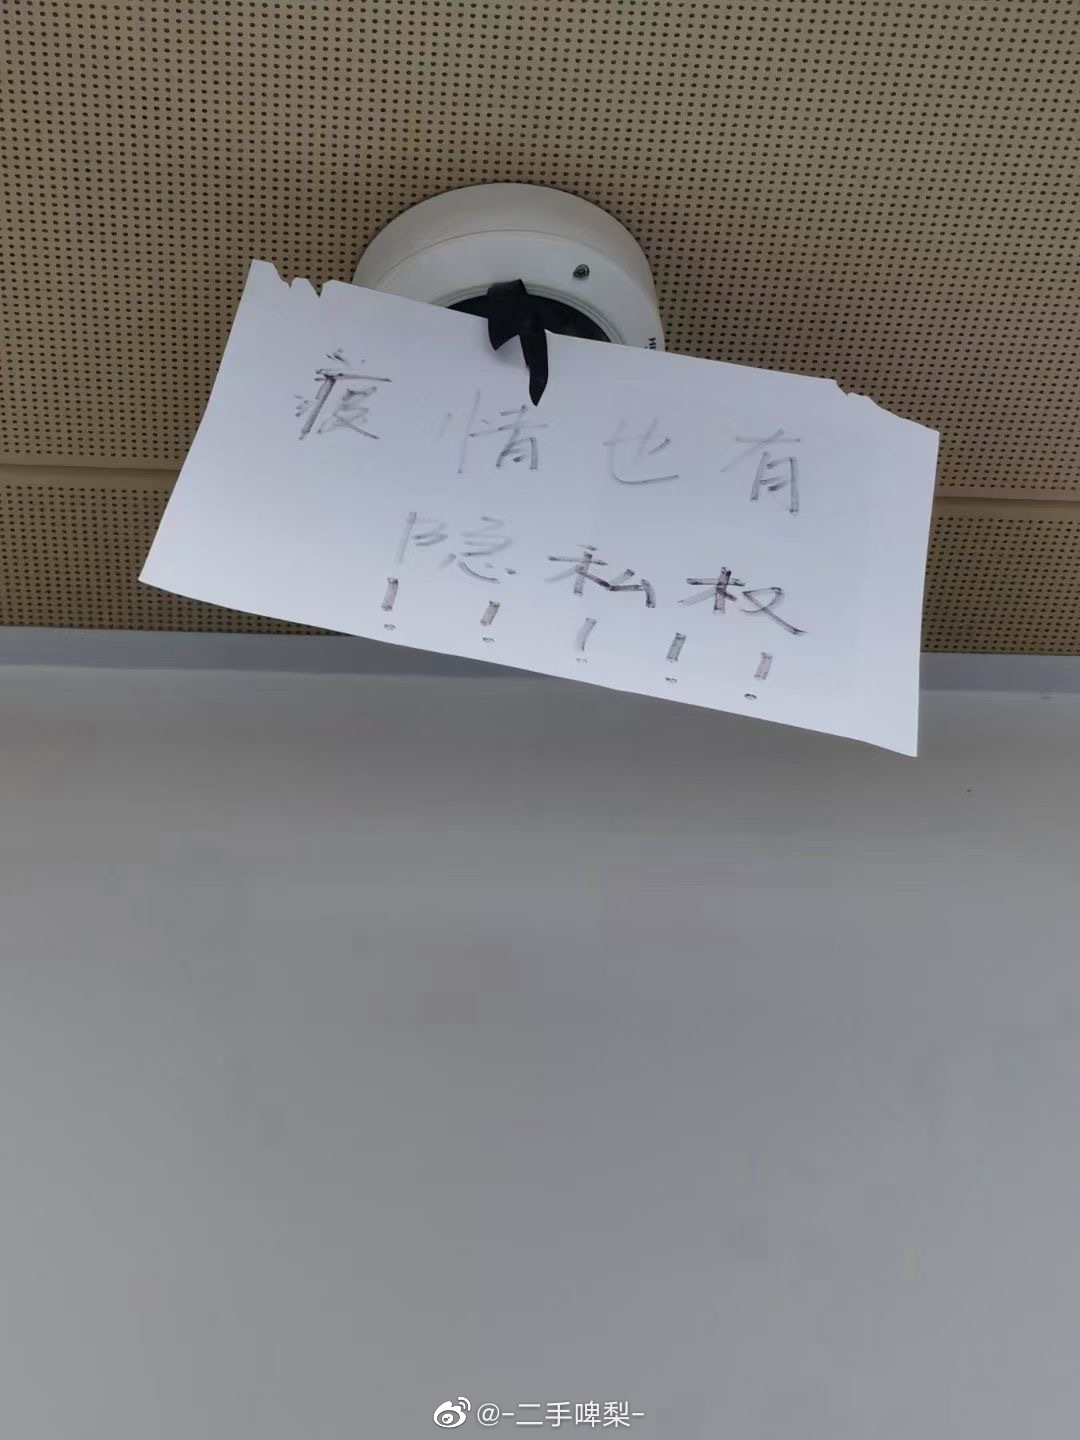 疫情也有
隐私权
！！！！！
@-二手啤梨-